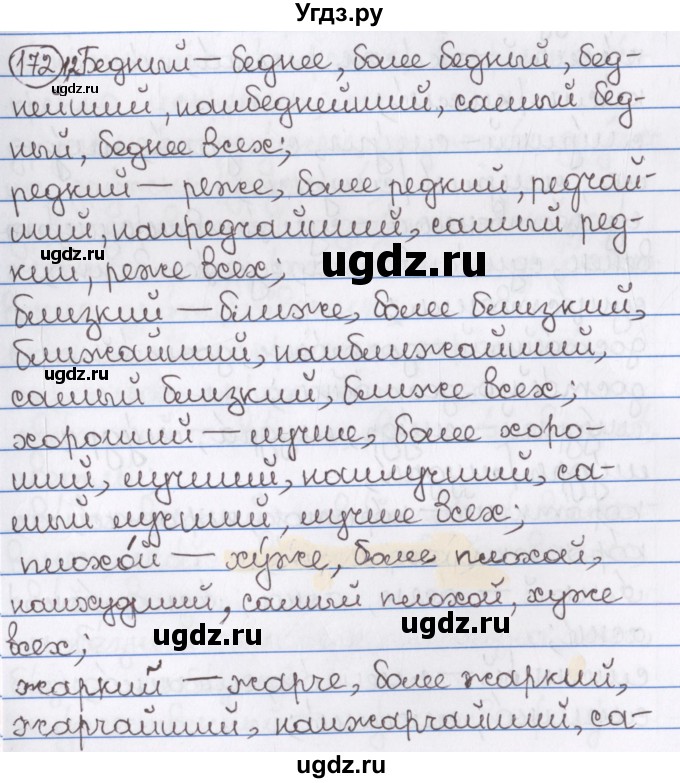 Угдз.ру
172, 2. Бедный — беднее, более бедный, бед-
нейший, наибеднейший, самый бед-
ный, беднее всех;
редкий — реже, более редкий, редчай-
ший, наиредчайший, самый ред-
кий, реже всех;
близкий — ближе, более близкий,
ближайший, наиближайший,
самый близкий, ближе всех;
хороший — лучше, более хоро-
ший, лучший, наилучший, са-
мый лучший, лучше всех;
плохо́й — ху́же, более плохой,
наихудший, самый плохой, хуже
всех;
жаркий — жарче, более жаркий,
жарчайший, наижарчайший, са-
ugdz.ru
ugdz.ru
ugdz.ru
ugdz.ru
ugdz.ru
ugdz.ru
ugdz.ru
ugdz.ru
ugdz.ru
ugdz.ru
ugdz.ru
ugdz.ru